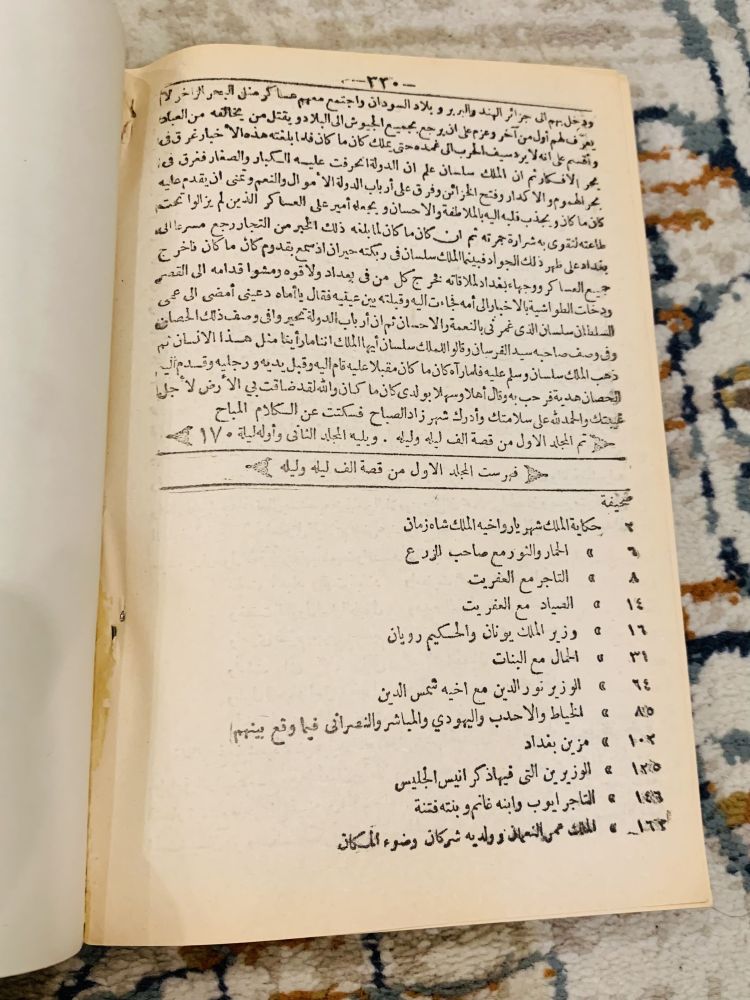 — ٣٣٠ —
ودخل بهم الى جزائر الهند والبربر و بلاد السودان واجتمع معهم عساكر مثل البحر الزاخر لا
يعرف لهم أول من آخر وعزم على ان يرجع بجميع الجيوش الى البلاد و يقتل من يخالفه من العباد
وأقسم على انه لا يرد سيف الحرب الى غمده حتى يملك كان ما كان فلما بلغته هذه الأخبار غرق فى
بحر الأفكار ثم ان الملك سلسان علم ان الدولة انحرفت عليه الكبار والصغار فغرق فى
بحر الهموم والا كدار وفتح الخزائن وفرق على أرباب الدولة الأموال والنعم وتمنى ان يقدم عليه
كان ما كان و يجذب قلبه اليه بالملاطفة والاحسان و يجعله أمير على العساكر الذين لم يزالوا تحت
طاعته لتقوى به شرارة جمرته ثم ان كان ما كان لما بلغه ذلك الخبر من التجار رجع مسرعا الى
بغداد على ظهر ذلك الجواد فبينما الملك سلسان فى ربكته حيران اذ سمع بقدوم كان ما كان فاخرج
جميع العساكر ووجهاء بغداد لملاقاته فخرج كل من فى بغداد ولاقوه ومشوا قدامه الى القصر
ودخلت الطواشية بالاخبار الى أمه فجاءت اليه وقبلته بين عينيه فقال يا أماه دعينى أمضى الى عمى
السلطان سلسان الذى غمرنى بالنعمة والاحسان ثم ان أرباب الدولة تحير وا فى وصف ذلك الحصان
وفى وصف صاحبه سيد الفرسان وقالوا للملك سلسان أيها الملك اننا ما رأينا مثل هذا الانسان ثم
ذهب الملك سلسان وسلم عليه فلما رآه كان ما كان مقبلا عليه قام اليه وقبل يديه و رجليه وقدم اليه
الحصان هدية فرحب به وقال أهلا وسهلا بولدى كان ما كان والله لقد ضاقت بي الأرض لأجل
غيبتك والحمد لله على سلامتك وأدرك شهر زاد الصباح فسكتت عن الكلام المباح
تم المجلد الاول من قصة الف ليله وليله . ويليه المجلد الثانى وأوله ليلة ١٧٠
فهرست المجلد الاول من قصة الف ليله وليله
صحيفة
٢ حكاية الملك شهر يار واخيه الملك شاه زمان
٦ » الحمار والثور مع صاحب الزرع
٨ » التاجر مع العفريت
١٤ » الصياد مع العفريت
١٦ » وزير الملك يونان والحكيم رويان
٣١ » الحمال مع البنات
٦٤ » الوزير نور الدين مع اخيه شمس الدين
٨٥ » الخياط والاحدب واليهودي والمباشر والنصرانى فيما وقع بينهم
١٠٢ » مزين بغداد
١٢٥ » الوزيرين التى فيها ذكر انيس الجليس
١٤٦ » التاجر ايوب وابنه غانم و بنته فتنة
١٦٣ » الملك عمر النعمان و ولديه شركان وضوء المكان